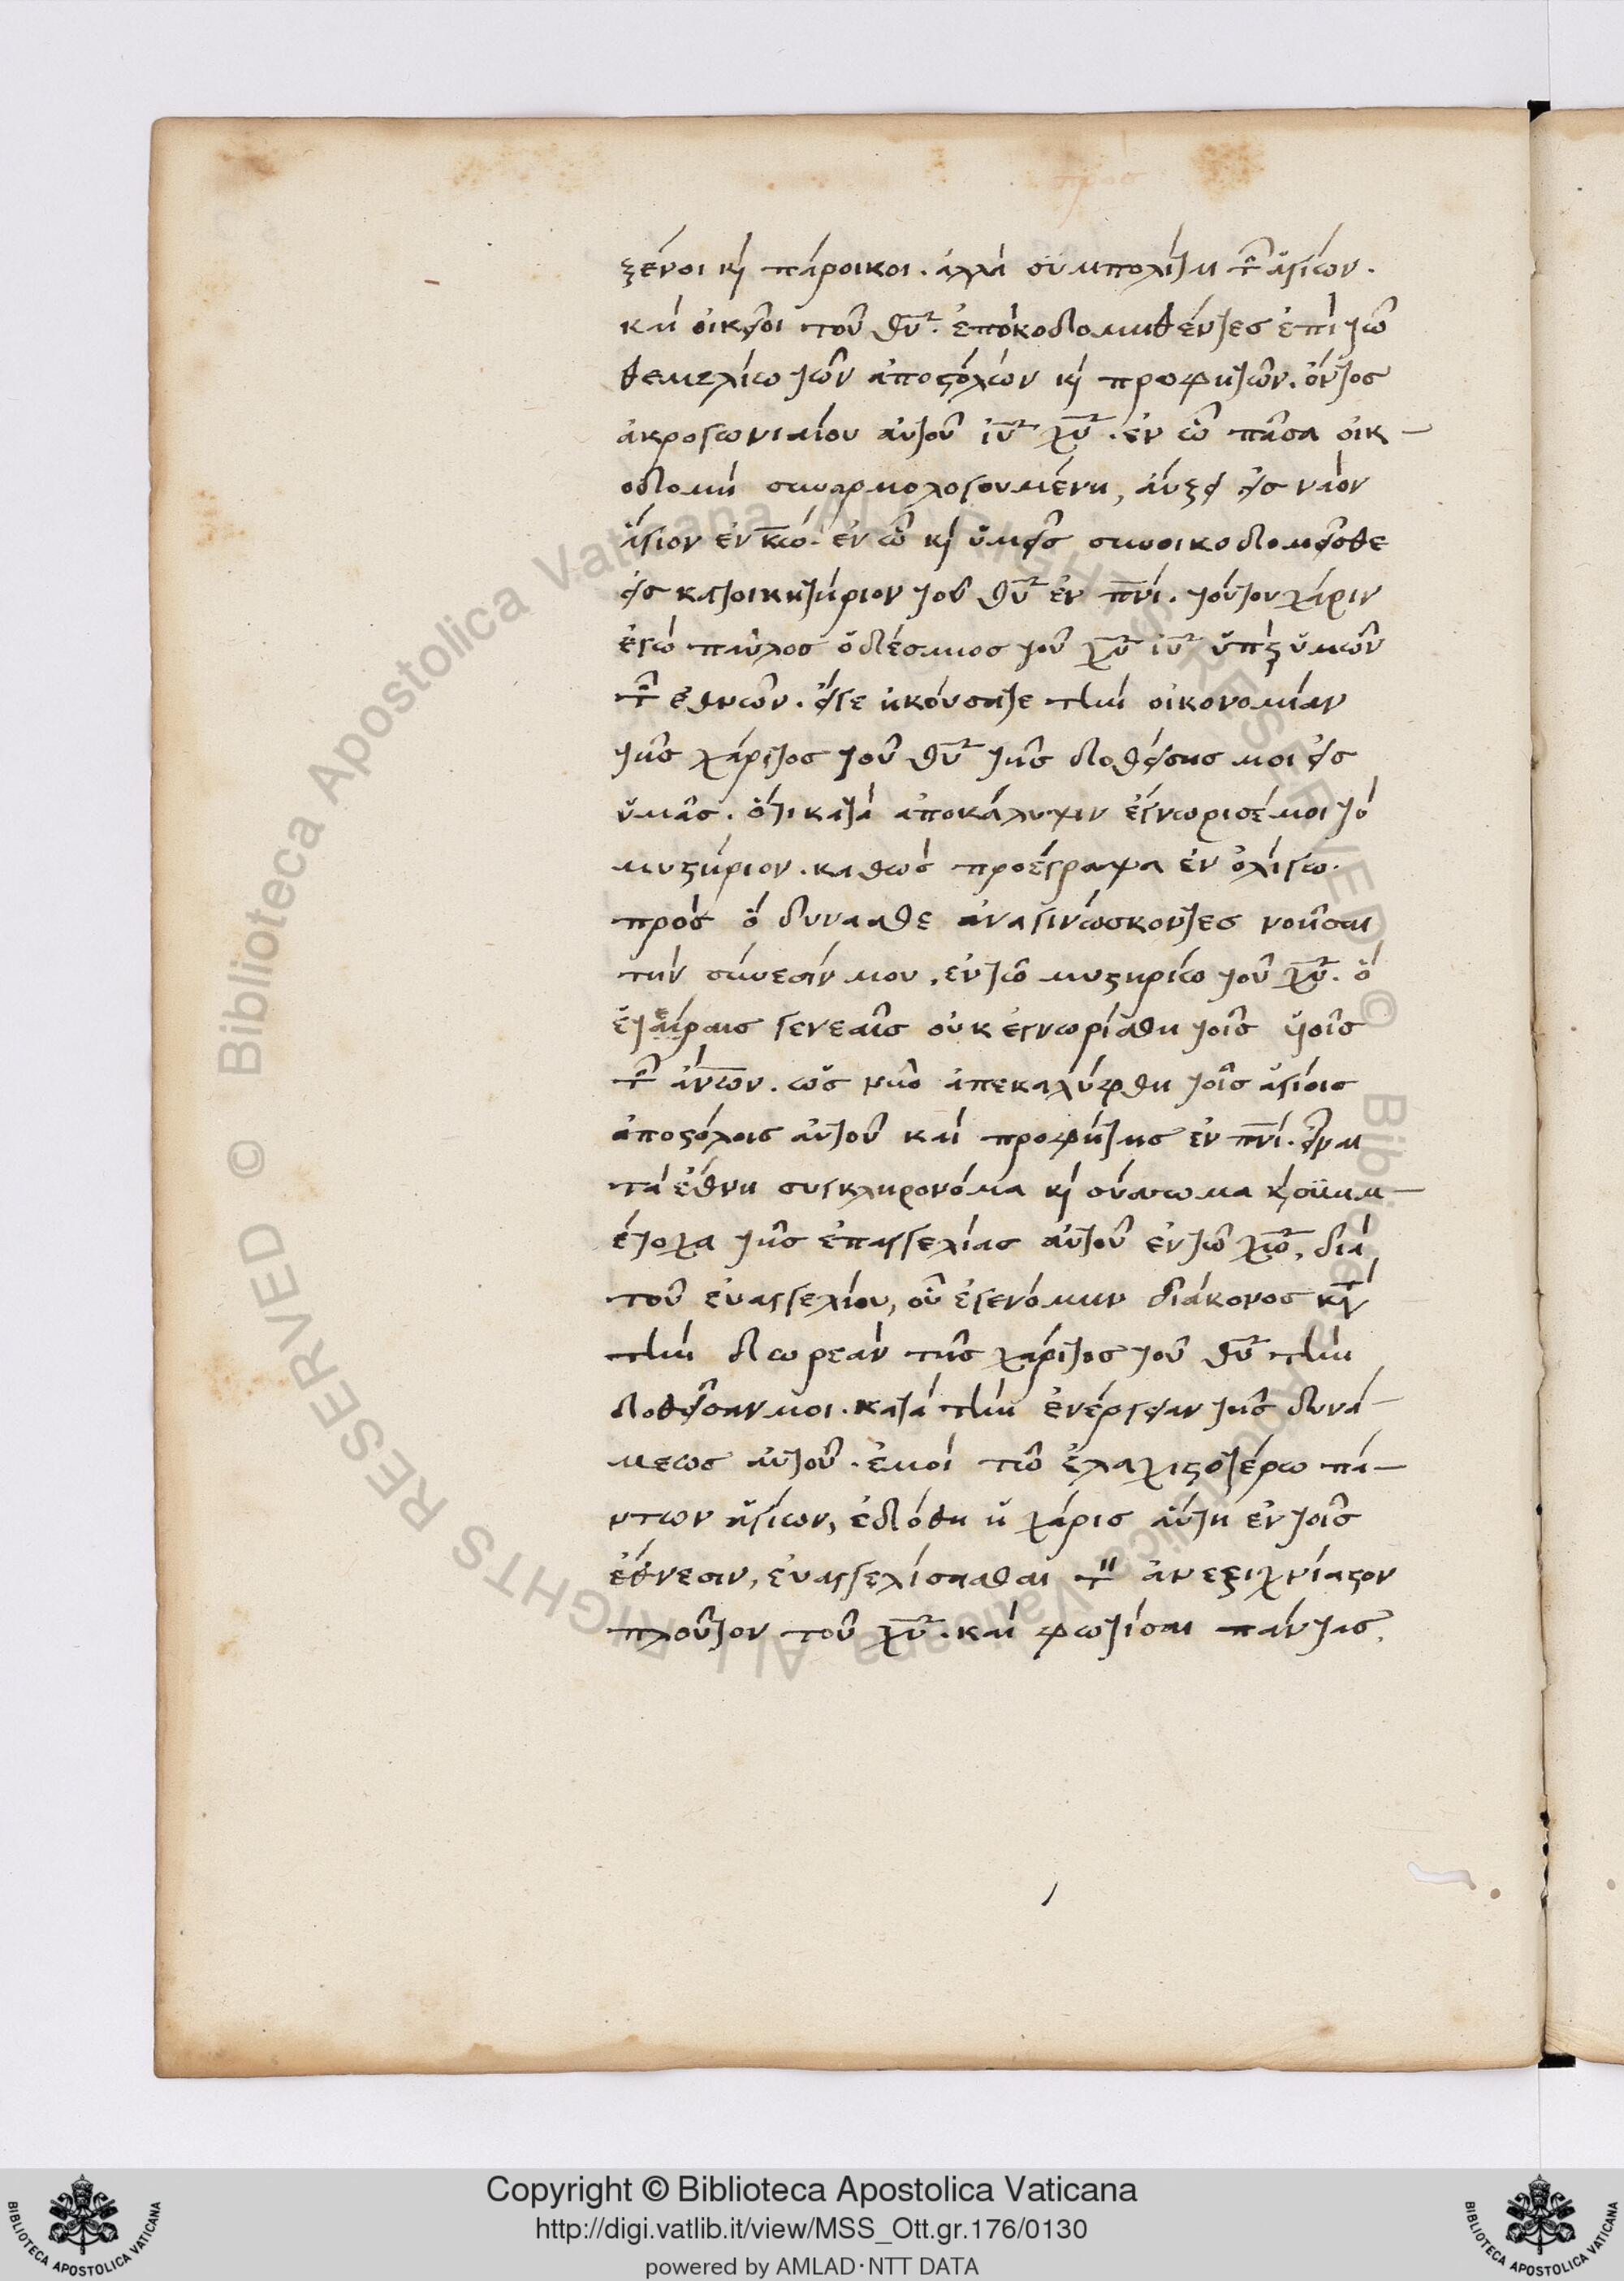 ξένοι κὶ πάροικοι. ἀλλὰ συμπολίται τ̅ ἁγίων.
καὶ οἰκεῖοι τοῦ θυ̅. ἐποικοδομηθέντες ἐπὶ τῶ
θεμελίω τῶν ἀποστόλων κὶ προφητῶν. ὄντος
ἀκρογωνιαίου αὐτοῦ ἰυ̅ χυ̅. ἐν ὧ πᾶσα οἰκ-
οδομὴ συναρμολογουμένη, αὔξει εἰς ναὸν
ἅγιον ἐν κω̅. ἐν ὧ κὶ ὑμεῖς συνοικοδομεῖσθε
εἰς κατοικητήριον τοῦ θυ̅ ἐν πνι̅. τούτου χάριν
ἐγὼ παῦλος ὁ δέσμιος τοῦ χυ̅ ἰυ̅ ὑπὲρ ὑμῶν
τ̅ ἐθνῶν. εἴγε ἠκούσατε τὴν οἰκονομίαν
τῆς χάριτος τοῦ θυ̅ τῆς δοθείσης μοι εἰς
ὑμᾶς. ὅτι κατὰ ἀποκάλυψιν ἐγνώρισέ μοι τὸ
μυστήριον. καθὼς προέγραψα ἐν ὀλίγω.
πρὸς ὃ δύνασθε ἀναγινώσκοντες νοῆσαι
τὴν σύνεσίν μου, ἐν τῶ μυστηρίω τοῦ χυ̅. ὃ
ἑταίραις γενεαῖς οὐκ ἐγνωρίσθη τοῖς υἱοῖς
τ̅ ἀν̅ων. ὡς νῦν ἀπεκαλύφθη τοῖς ἁγίοις
ἀποστόλοις αὐτοῦ καὶ προφήταις ἐν πνι̅. εἶναι
τὰ ἔθνη συγκληρονόμα κὶ σύσσωμα κὶ συμμ-
έτοχα τῆς ἐπαγγελίας αὐτοῦ ἐν τῶ χω̅, διὰ
τοῦ εὐαγγελίου, οὗ ἐγενόμην διάκονος κατὰ
τὴν δωρεὰν τῆς χάριτος τοῦ θυ̅ τὴν
δοθεῖσαν μοι. κατὰ τὴν ἐνέργειαν τῆς δυνά-
μεως αὐτοῦ. ἐμοὶ τῶ ἐλαχιστοτέρω πά-
ντων ἁγίων, ἐδόθη ἡ χάρις αὕτη ἐν τοῖς
ἔθνεσιν, εὐαγγελίσασθαι τ̅ ἀνεξιχνίαστον
πλοῦτον τοῦ χυ̅. καὶ φωτίσαι πάντας,
Copyright © Biblioteca Apostolica Vaticana
http://digi.vatlib.it/view/MSS_Ott.gr.176/0130
powered by AMLAD·NTT DATA